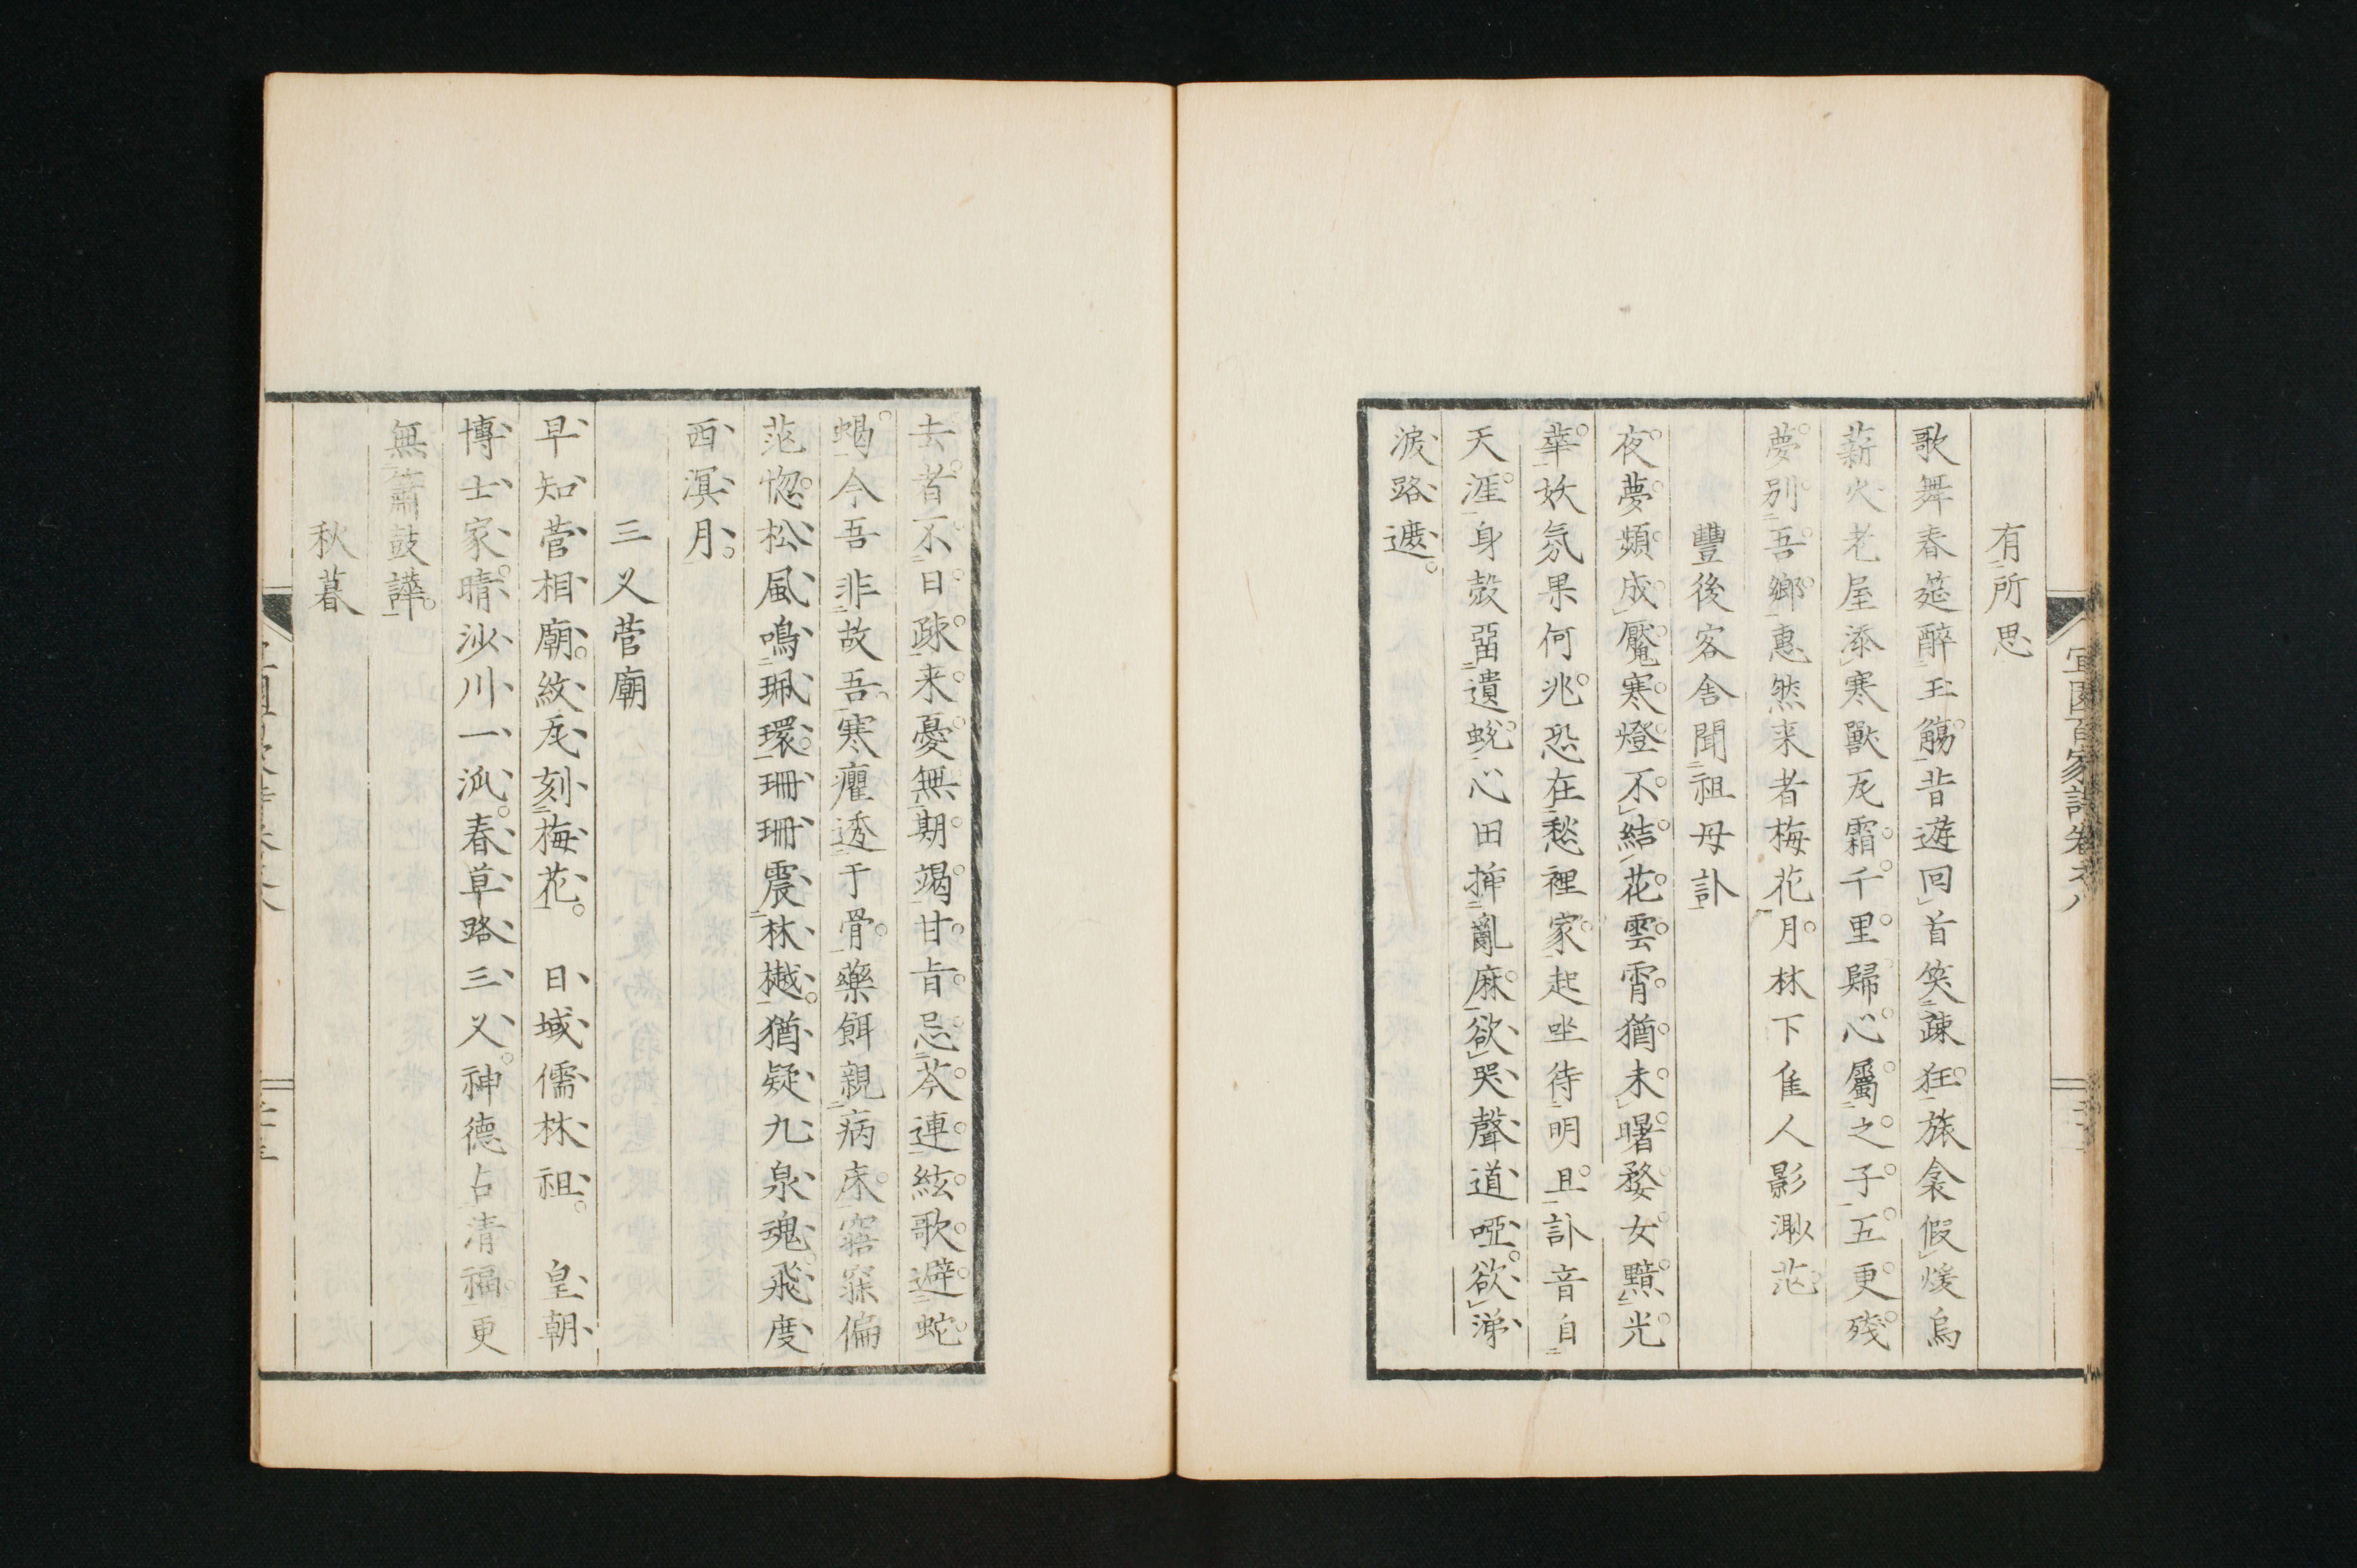 有所思
歌舞春筵醉玉觴昔遊回首笑疎狂旅衾假煖烏
薪火老屋添寒獸瓦霜千里歸心屬之子五更殘
夢別吾鄉惠然来者梅花月林下隹人影渺茫
豐後客舍聞祖母訃
夜夢頻成魘寒燈不結花雲霄猶未曙婺女黯光
華妖氛果何兆恐在愁裡家起坐待明且訃音自
天涯身殼畱遺蛻心田揷亂麻欲哭聲道啞欲涕
淚路遮
去者不日疎来憂無期竭甘旨忌芩連絃歌避蛇
蝎今吾非故吾寒癯透于骨藥餌親病床寤寐偏
茫惚松風鳴珮環珊珊震林樾猶疑九泉魂飛度
西溟月
三乂菅廟
早知菅相廟紋瓦刻梅花 日域儒林祖 皇朝
博士家晴沙川一派春草路三乂神德占清福更
無簫鼓譁
秋暮